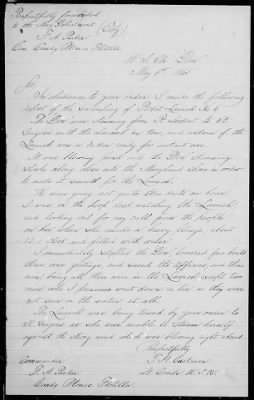 Respectfully forwarded
to the Navy Department
F A Parker (City)
Com Comdg Potomac Flotilla
U. S. Str. "Don"
May 1st 1865
Sir
In obedience to your order I make the following
report of the swamping of Picket Launch No 6
The Don was steaming from Pt Lookout to St
Inigoes with the Launch in tow, and
Launch was a tender ready for instant use
It was blowing fresh and the Don steaming
slowly along close into the Maryland shore in order
to make it smooth for the Launch
He was going not quite five knots an hour
I was on the deck watching the Launch
and looking out for any call from the people
on her when she made a heavy plunge, about
12.15 and filled with water
I immediately stopped the Don, lowered four boats
threw over gratings, and saved the officers, and three
men, being all there were in the Launch except two
men who I presume went down in her as they were
not seen in the water at all
The Launch was being towed by your order to
St Inigoes as she was unable to steam herself
against the strong wind which was blowing right ahead
Respectfully
Commander
F A Parker
Lt Comdr U. S. N.
Comdg Potomac Flotilla